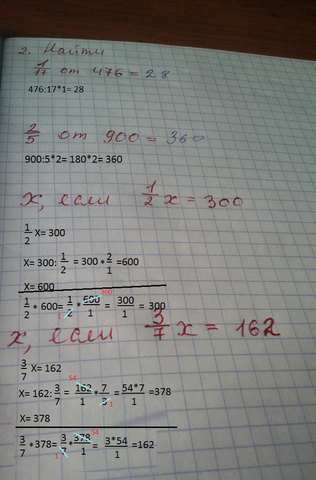 2. Найти
1/17 от 476 = 28
476:17*1= 28
2/5 от 900 = 360
900:5*2= 180*2= 360
x, если 1/2 x = 300
1/2 X= 300
X= 300: 1/2 = 300 * 2/1 =600
X= 600
1/2 * 600= 1/2 * 600/1 = 300/1 = 300
1 300
x, если 3/7 x = 162
3/7 X= 162
54
X= 162: 3/7 = 162/1 * 7/3 = 54*7/1 =378
1
X= 378
3/7 *378= 3/7 * 378/1 = 3*54/1 =162
1 54